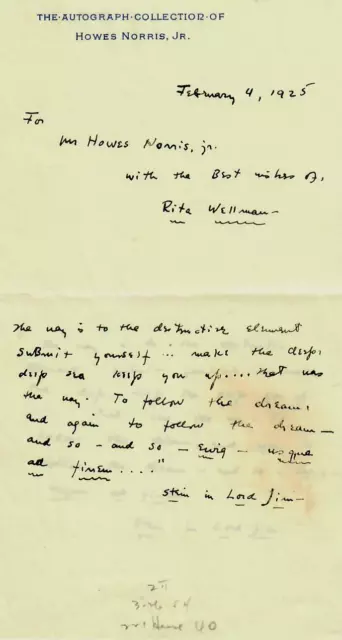 THE·AUTOGRAPH·COLLECTION·OF
HOWES NORRIS, JR.
February 4, 1925
For
Mr Howes Norris, jr.
with the Best wishes of,
Rita Wellman—
The way is to the destructive element
submit yourself ... make the deep,
deep sea keep you up.... That was
the way. To follow the dream,
and again to follow the dream —
and so — and so — ewig — usque
ad finem...."
Stein in Lord Jim—